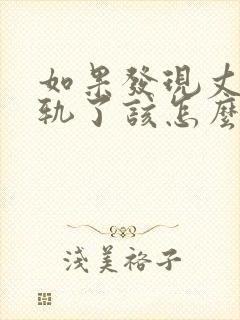 如果發現丈
軌了該怎麼
淺美裕子